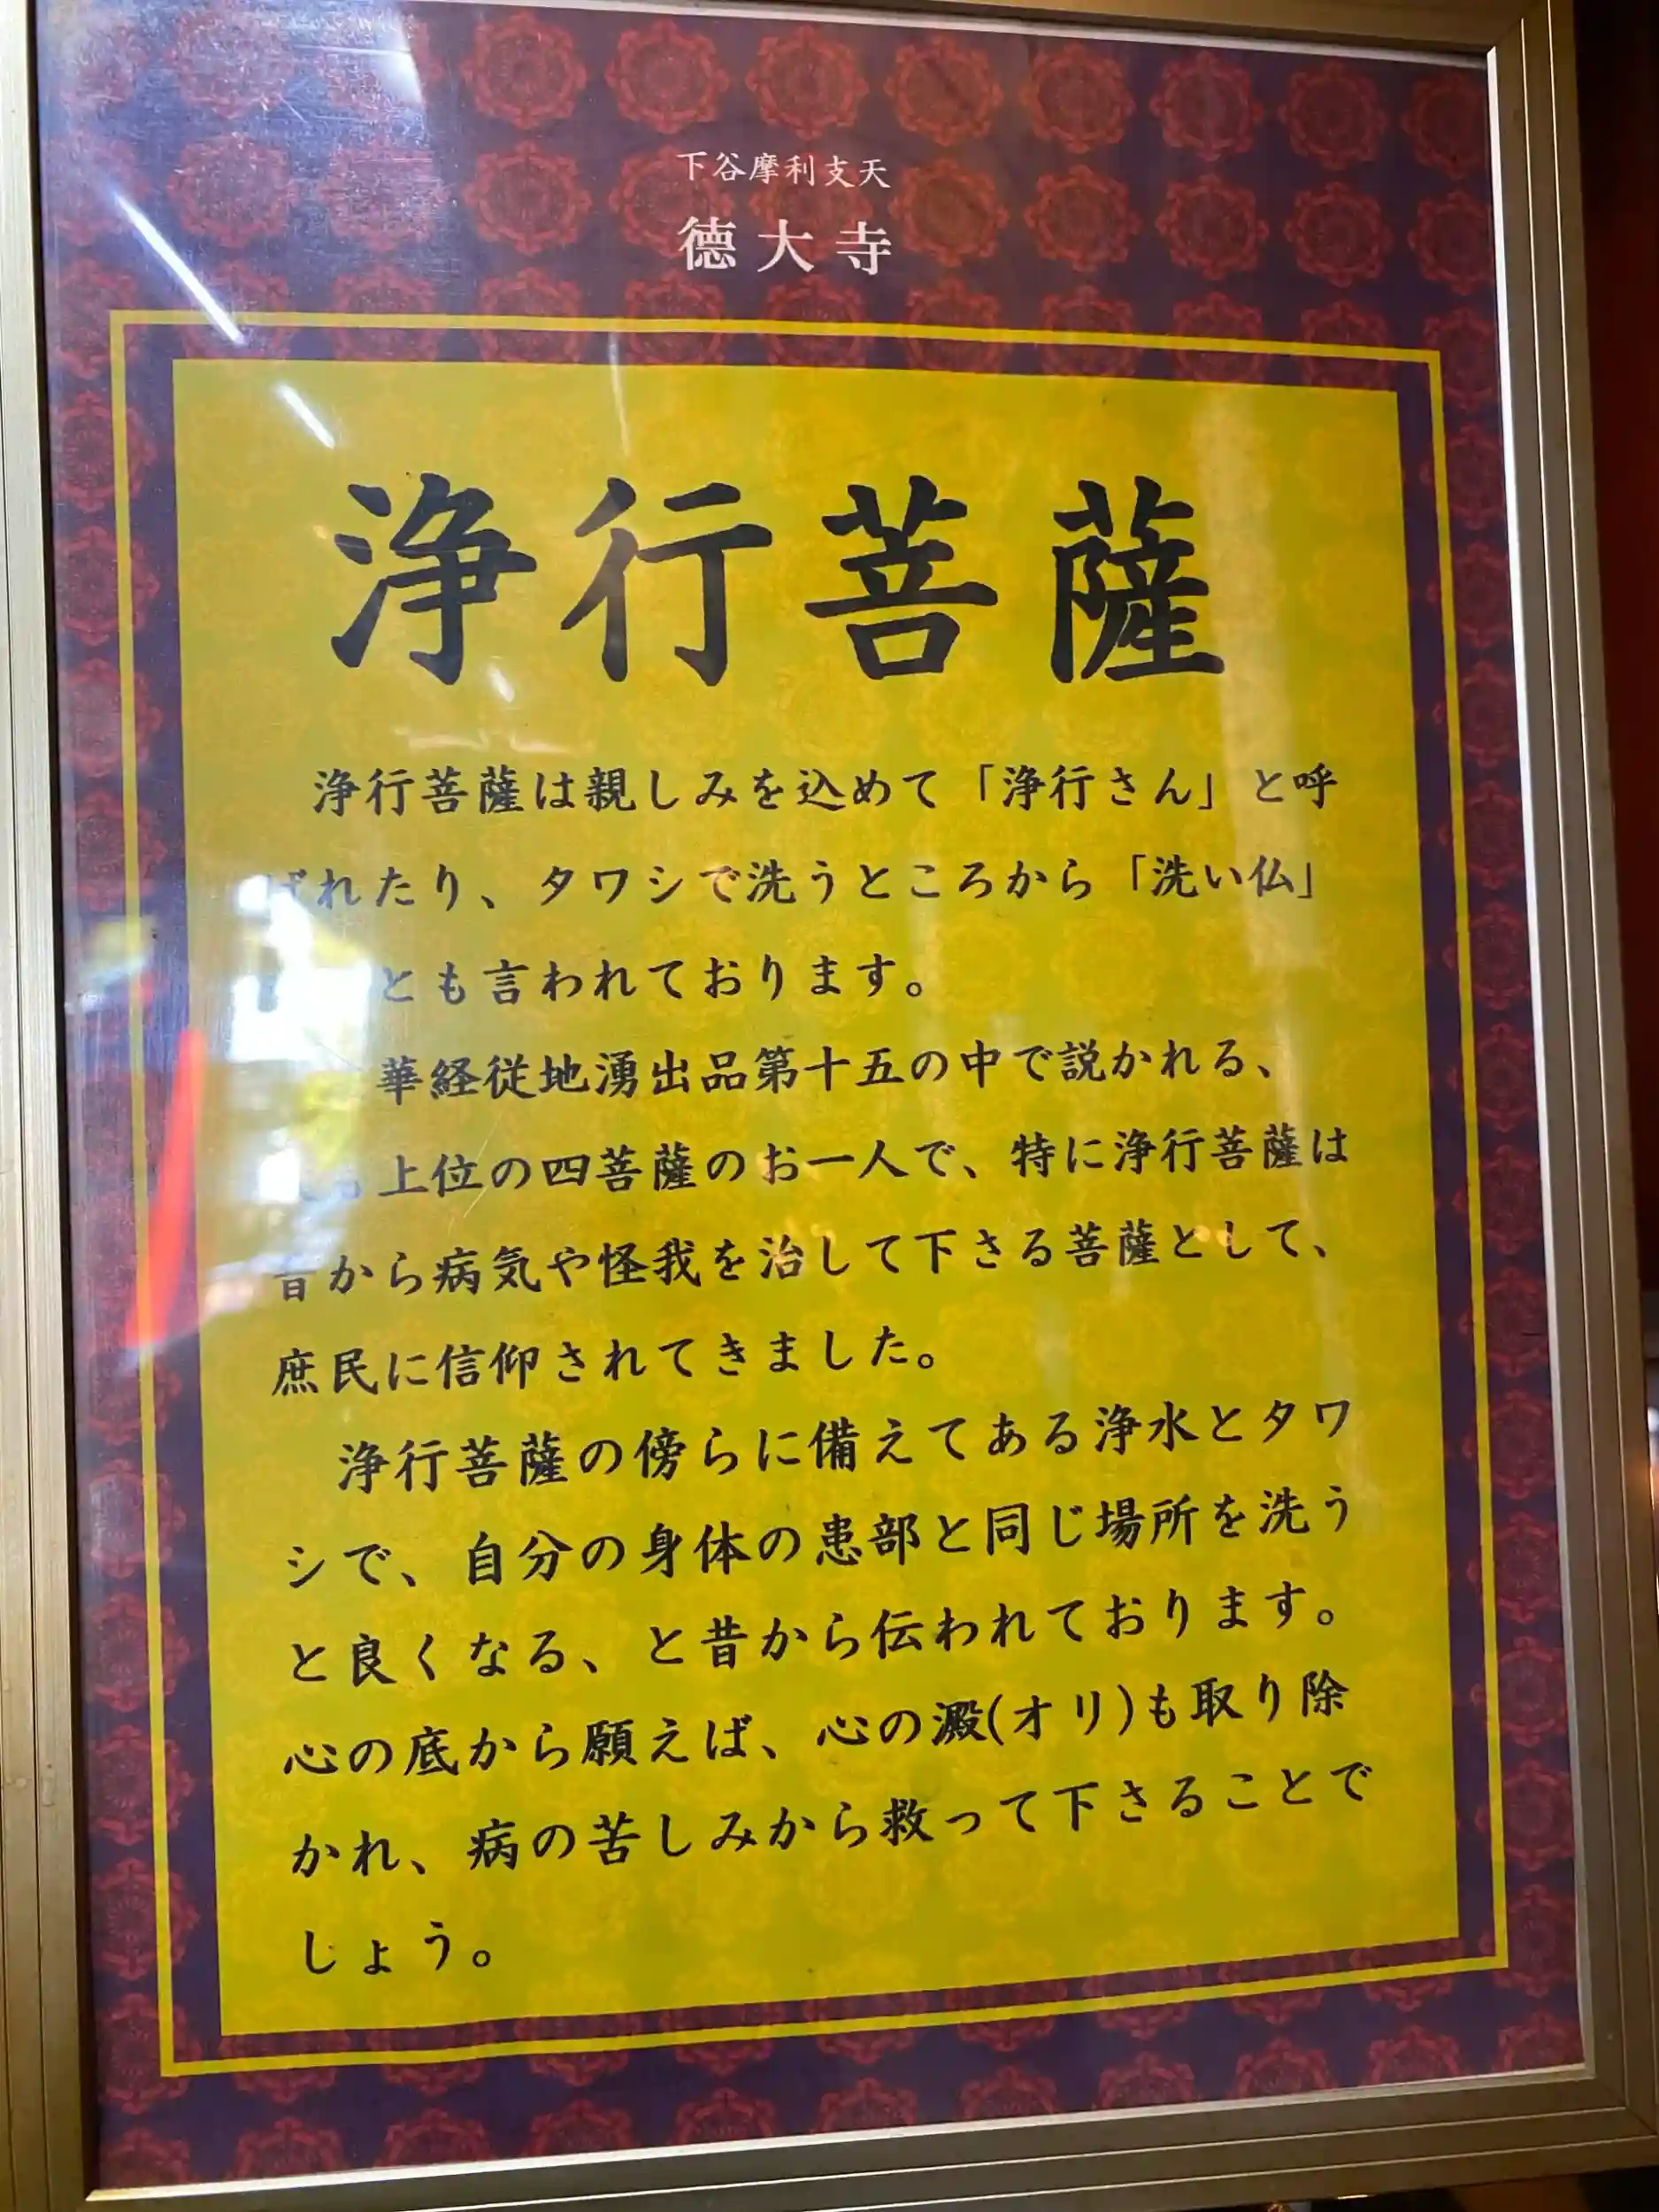 下谷摩利支天
徳大寺
浄行菩薩
浄行菩薩は親しみを込めて「浄行さん」と呼
ばれたり、タワシで洗うところから「洗い仏」
とも言われております。
華経従地湧出品第十五の中で説かれる、
上位の四菩薩のお一人で、特に浄行菩薩は
昔から病気や怪我を治して下さる菩薩として、
庶民に信仰されてきました。
浄行菩薩の傍らに備えてある浄水とタワ
シで、自分の身体の患部と同じ場所を洗う
と良くなる、と昔から伝われております。
心の底から願えば、心の澱(オリ)も取り除
かれ、病の苦しみから救って下さることで
しょう。